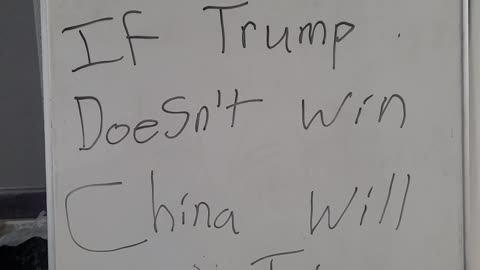 If Trump
Doesn't win
China Will